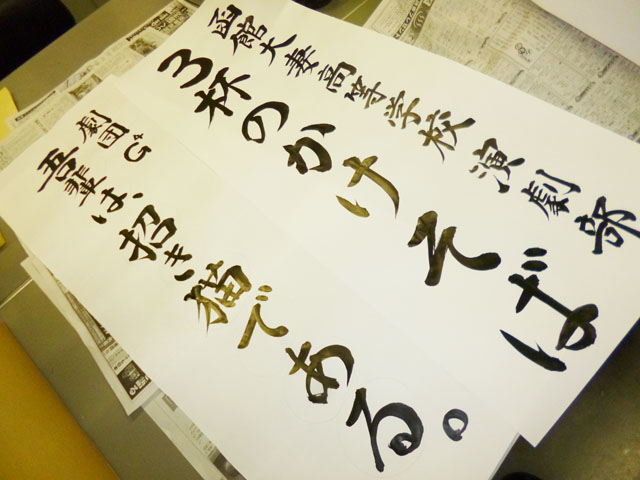 函館大妻高等学校 演劇部
3杯のかけそば
劇団4G
吾輩は、招き猫である。